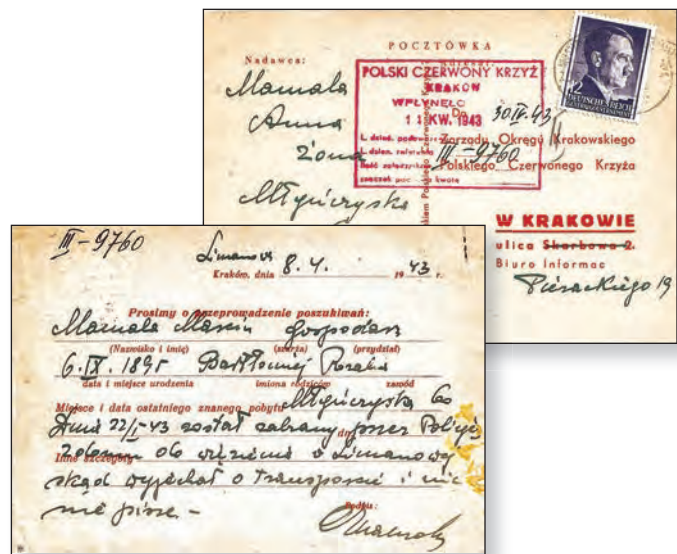 POCZTÓWKA
Nadawca:
Mamala
Anna
żona
Młyńczyska
POLSKI CZERWONY KRZYŻ
KRAKOW
WPŁYNĘŁO
1 KW. 1943
Do
30 IV. 43
Zarządu Okręgu Krakowskiego
III-9760
Polskiego Czerwonego Krzyża
12
DEUTSCHES REICH
GENERALGOUVERNEMENT
W KRAKOWIE
ulica Skarbowa 2.
Biuro Informac
Pierackiego 19
III-9760
Limanowa
Kraków, dnia 8. 4. 1943 r.
Prosimy o przeprowadzenie poszukiwań:
Mamala Marcin gospodarz
(Nazwisko i imię) (szarża) (przydział)
6. IX. 1895 Bartłomiej Rozalia
data i miejsce urodzenia imiona rodziców zawód
Miejsce i data ostatniego znanego pobytu Młyńczyska 60
Dnia 22/I-43 został zabrany przez Policję
Inne szczegóły
do więzienia w Limanowy
skąd wyjechał o transporcie i nic
nie pisze -
Podpis: